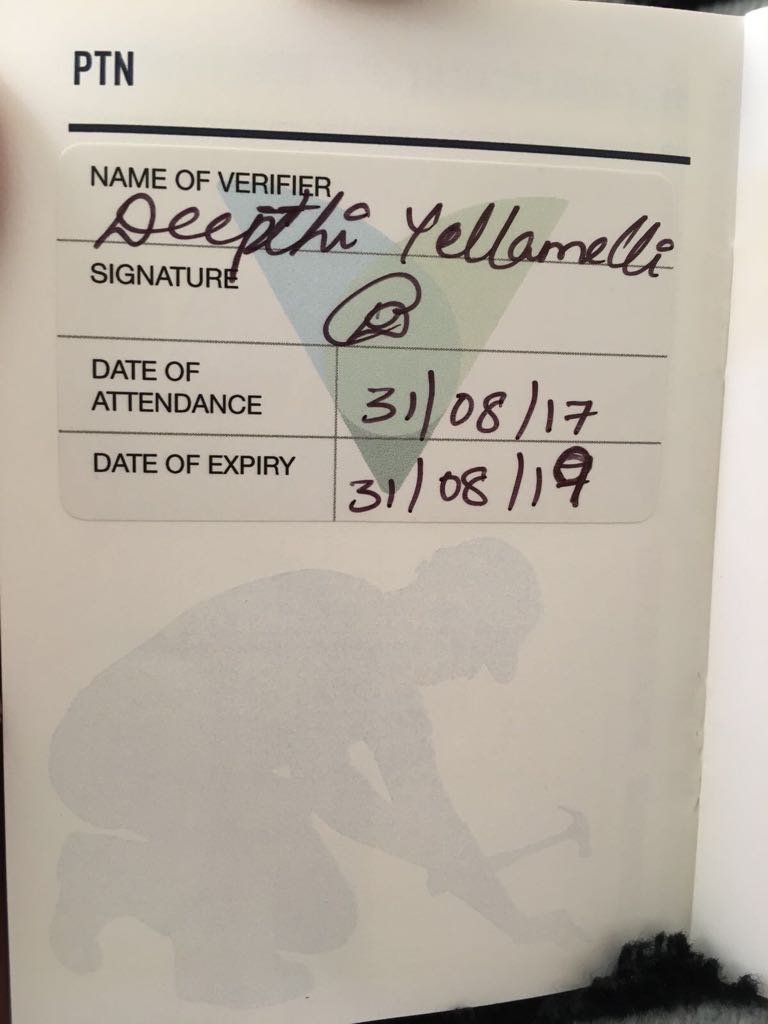 PTN
NAME OF VERIFIER
Deepthi Yellamelli
SIGNATURE
DATE OF
ATTENDANCE
31/08/17
DATE OF EXPIRY
31/08/19